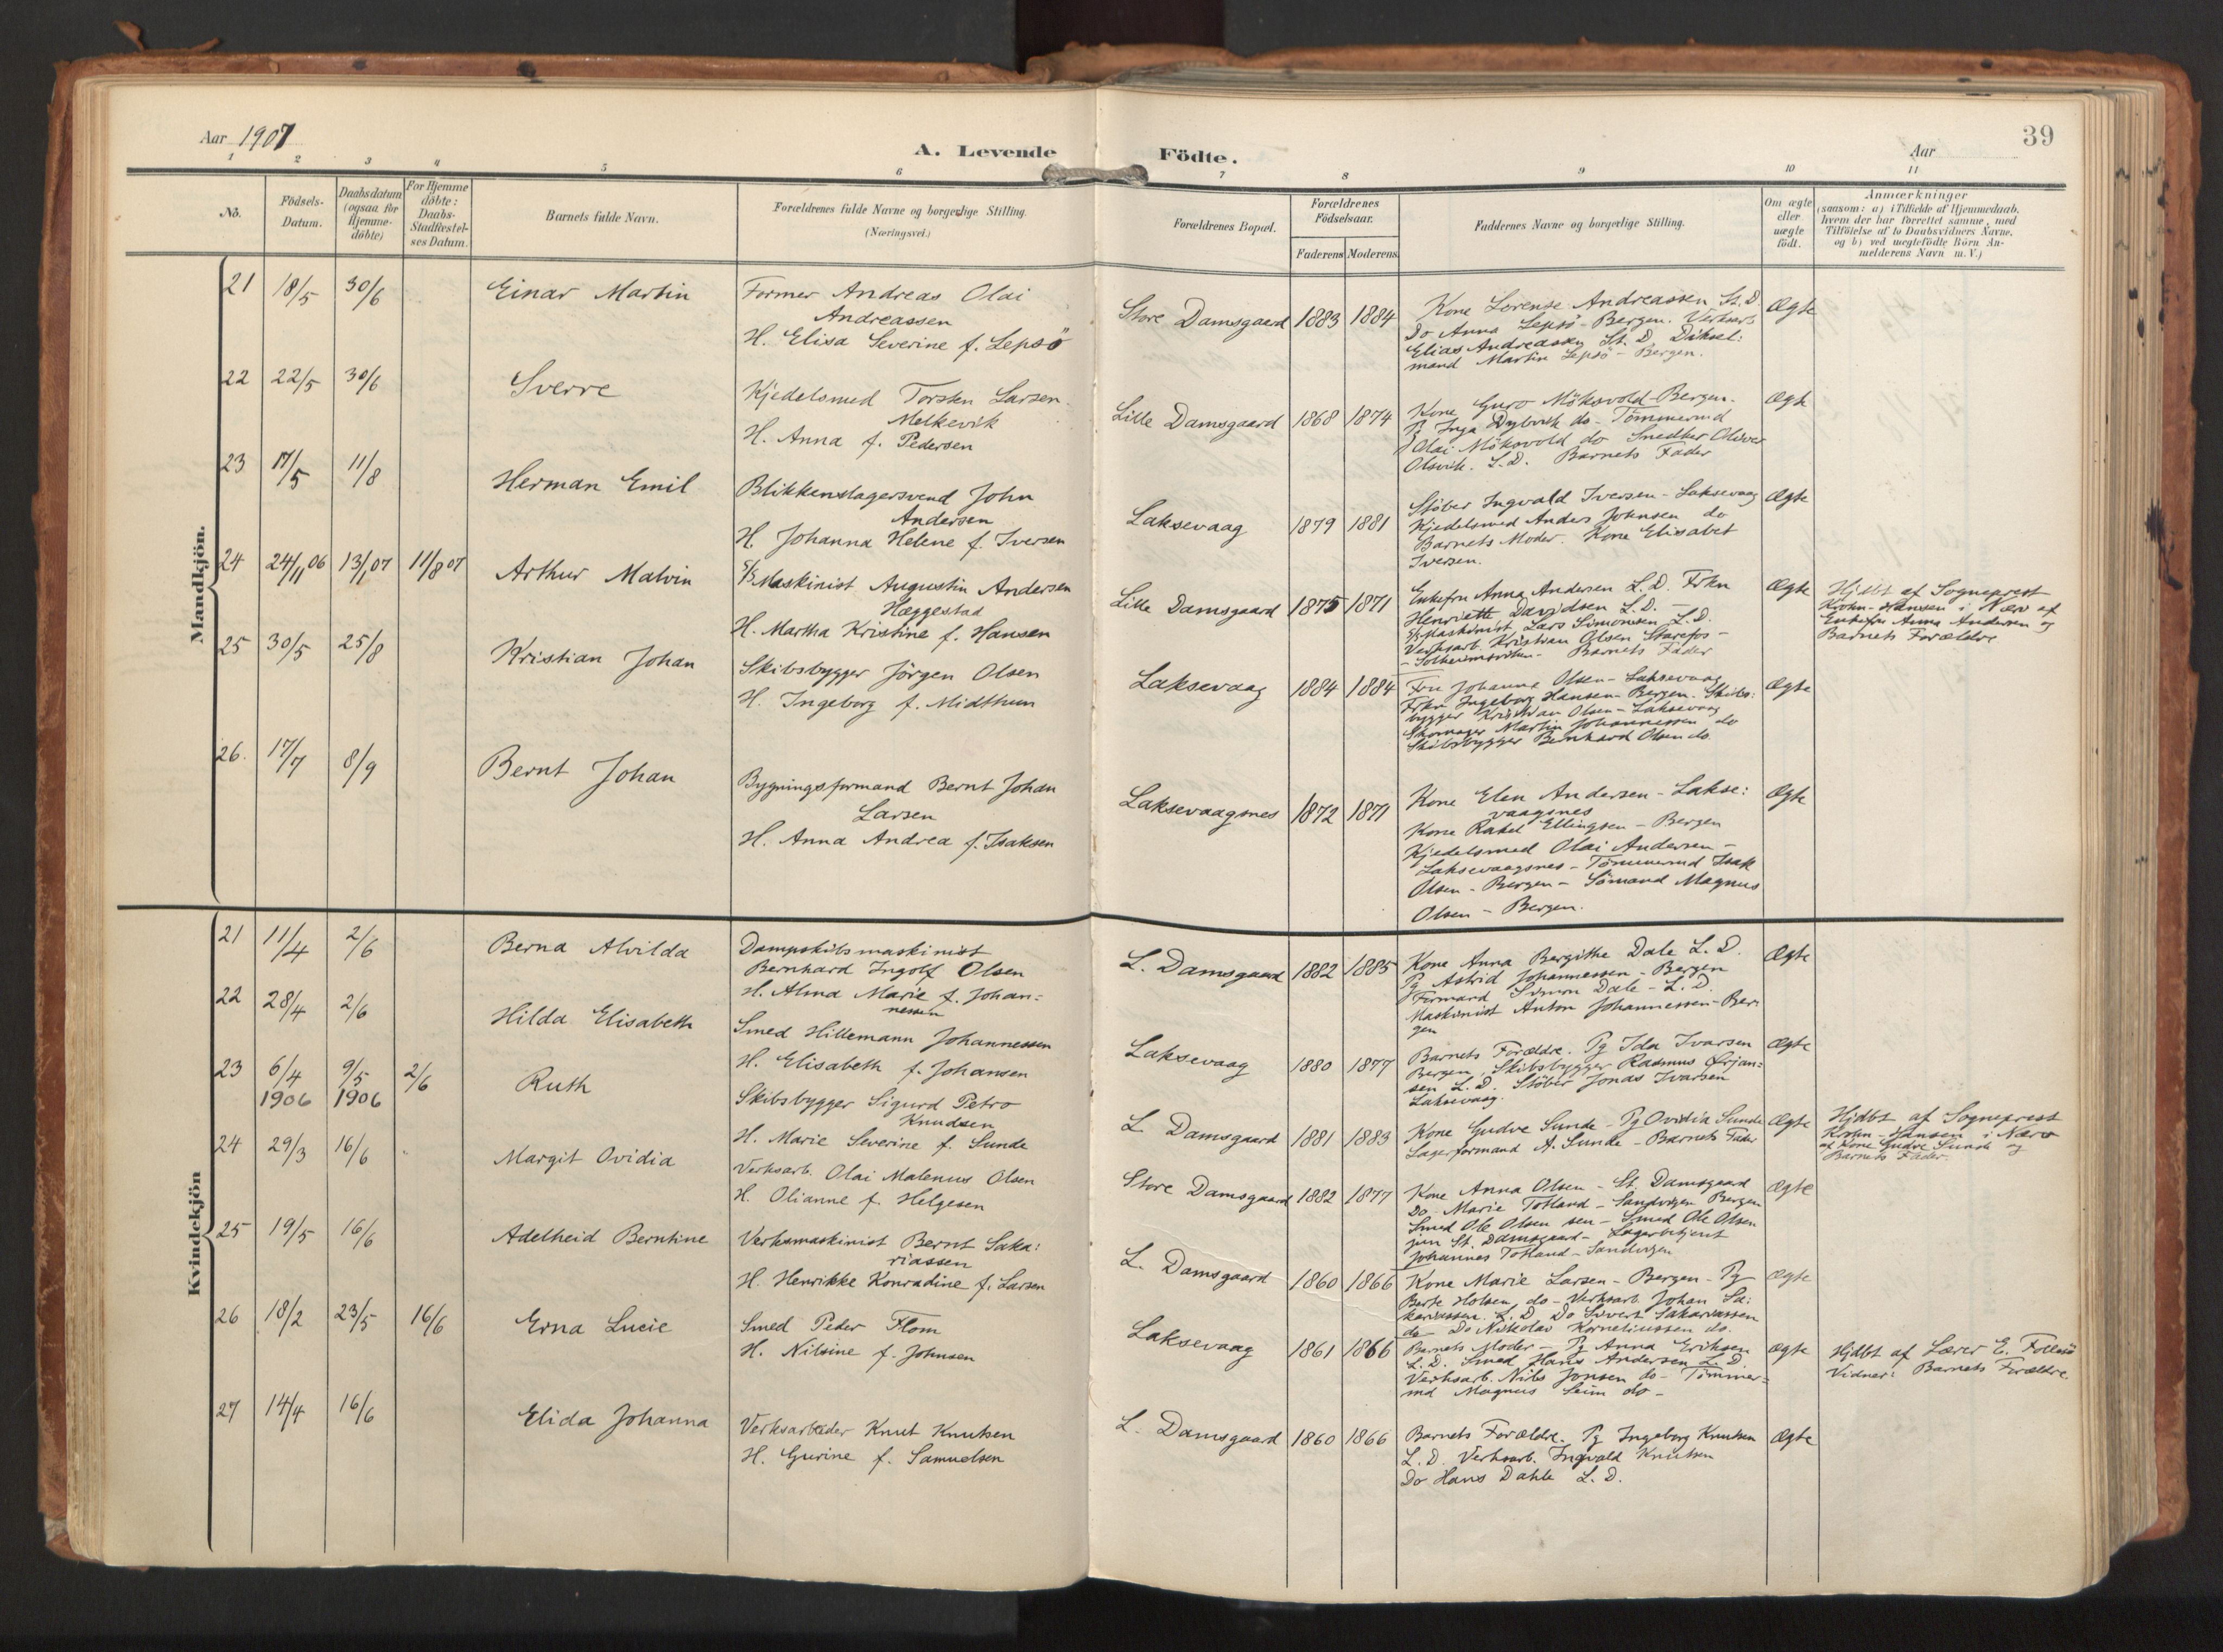 Aar 1907
A. Levende
Födte.
Aar
39
1 2 3 4 5 6 7 8 9 10 11
No.
Födsels-
Datum.
Daabsdatum
(ogsaa for
Hjemme-
döbte)
For Hjemme
döbte:
Daabs-
Stadfæstel-
ses Datum.
Barnets fulde Navn.
Forældrenes fulde Navne og borgerlige Stilling.
(Næringsvei.)
Forældrenes Bopæl.
Forældrenes
Födselsaar.
Faderens Moderens
Faddernes Navne og borgerlige Stilling.
Om ægte
eller
uægte
födt.
Anmærkninger
(saasom: a) i Tilfælde af Hjemmedaab,
hvem der har forrettet samme, med
Tilföielse af to Daabsvidners Navne,
og b) ved uægtefödte Börn An-
melderens Navn m. V.)
Mandkjön.
21 18/5 30/6 Einar Martin
Former Andreas Olai
Andreassen
H. Elisa Severine f. Lepsö
Store Damsgaard 1883 1884
Kone Lorense Andreassen St. D
Do Anna Lepsö - Bergen. Verksarb
Elias Andreassen St. D. Dæksel:
mand Martin Lepsö - Bergen.
Ægte
22 22/5 30/6 Sverre
Kjedelsmed Torsten Larsen
Melkevik
H. Anna f. Pedersen
Lille Damsgaard 1868 1874
Kone Guro Möksvold Bergen.
P. Inga Dybvik do - Tömmermd
Olai Möksvold do Snedker Oliver
Olsvik. L.D. Barnets Fader
Ægte
23 17/5 11/8 Herman Emil
Blikkenslagersvend John
Andersen
H. Johanna Helene f. Iversen
Laksevaag 1879 1881
Stöber Ingvald Iversen - Laksevaag
Kjedelsmed Anders Johnsen do
Barnets Moder. Kone Elisabet
Iversen.
Ægte
24 24/11 06 13/1 07 11/8 07 Arthur Malvin
S/S Maskinist Augustin Andersen
Hæggestad
H. Martha Kristine f. Hansen
Lille Damsgaard 1875 1871
Enkefru Anna Andersen L.D. Frkn
Henriette Davidsen L.D. -
S/S Maskinist Lars Simonsen L.D.
Verksarb. Kristian Olsen Storefos -
- Solheimsviken - Barnets Fader
Ægte
Hjdöbt af Sogneprest
Krohn-Hansen i Nærv af
Enkefru Anna Andersen og
Barnets Forældre
25 30/5 25/8 Kristian Johan
Skibsbygger Jörgen Olsen
H. Ingeborg f. Midthun
Laksevaag 1884 1884
Fru Johanna Olsen - Laksevaag
Frkn Ingeborg Hansen - Bergen. Skibs:
bygger Kristian Olsen - Laksevaag
Skomager Martin Johannessen do
Skibsbygger Bernhard Olsen do
Ægte
26. 17/7 8/9 Bernt Johan
Bygningsformand Bernt Johan
Larsen
H. Anna Andrea f. Isaksen
Laksevaagsnes 1872 1871
Kone Elen Andersen - Lakse:
vaagsnes
Kone Rakel Ellingsen - Bergen
Kjedelsmed Olai Andersen -
Laksevaagsnes - Tömmermd Isak
Olsen - Bergen - Sömand Magnus
Olsen - Bergen.
Ægte
Kvindekjön
21 11/4 2/6 Berna Alvilda
Dampskibsmaskinist
Bernhard Ingolf Olsen
H. Alma Marie f. Johan=
nessen
L. Damsgaard 1882 1885
Kone Anna Bergithe Dale L. D.
Pg Astrid Johannessen - Bergen
Formand Simon Dale - L.D.
Maskinist Anton Johannessen - Ber:
gen
Ægte
22 28/4 2/6 Hilda Elisabeth
Smed Hillemann Johannessen
H. Elisabeth f. Johansen
Laksevaag 1880 1877
Barnets Forældre. Pg Ida Ivarsen
Bergen, Skibsbygger Rasmus Örjan=
sen L.D. Stöber Jonas Ivarsen
Laksevaag.
Ægte
23 6/4 1906 9/5 1906 2/6 Ruth
Skibsbygger Sigurd Petro
Knudsen
H. Marie Severine f. Sunde
L. Damsgaard 1881 1883
Kone Gudve Sunde - Pg Ovidia Sunde
Lagerformand A. Sunde - Barnets Fader
Ægte
Hjdöbt af Sogneprest
Krohn-Hansen i Nærv
af Kone Gudve Sunde og
Barnets Fader.
24 29/3 16/6 Margit Ovidia
Verksarb. Olai Malenus Olsen
H. Olianne f. Helgesen
Store Damsgaard 1882 1877
Kone Anna Olsen - St. Damsgaard
Do. Marie Totland - Sandvigen Bergen
Smed Ole Olsen sen - Smed Ole Olsen
jun St. Damsgaard - Lagerbetjent
Johannes Totland - Sandvigen
Ægte
25 19/5 16/6 Adelheid Berntine
Verksmaskinist Bernt Saka:
riassen
H. Henrikke Konradine f. Larsen
L. Damsgaard 1860 1866
Kone Marie Larsen - Bergen - Pg
Berte Holsen do - Verksarb. Johan Sa:
kariassen L.D. Do Sivert Sakariassen
do - Do Nikolai Korneliussen do.
Ægte
26 18/2 23/5 16/6 Erna Lucie
Smed Peder Flom
H. Nilsine f. Johnsen
Laksevaag 1861 1866
Barnets Moder - Pg Anna Eriksen
L.D. Smed Hans Andersen L.D.
Verksarb. Nils Jonsen do - Tömmer=
md Magnus Seim do -
Ægte
Hjdöbt af Lærer E. Follesö
Vidner: Barnets Forældre.
27 14/4 16/6 Elida Johanna
Verksarbeider Knut Knutsen
H. Gurine f. Samuelsen
L. Damsgaard 1860 1866
Barnets Forældre. Pg Ingeborg Knutsen
L.D. Verksarb. Ingvald Knutsen
Do Hans Dahle L.D.
Ægte